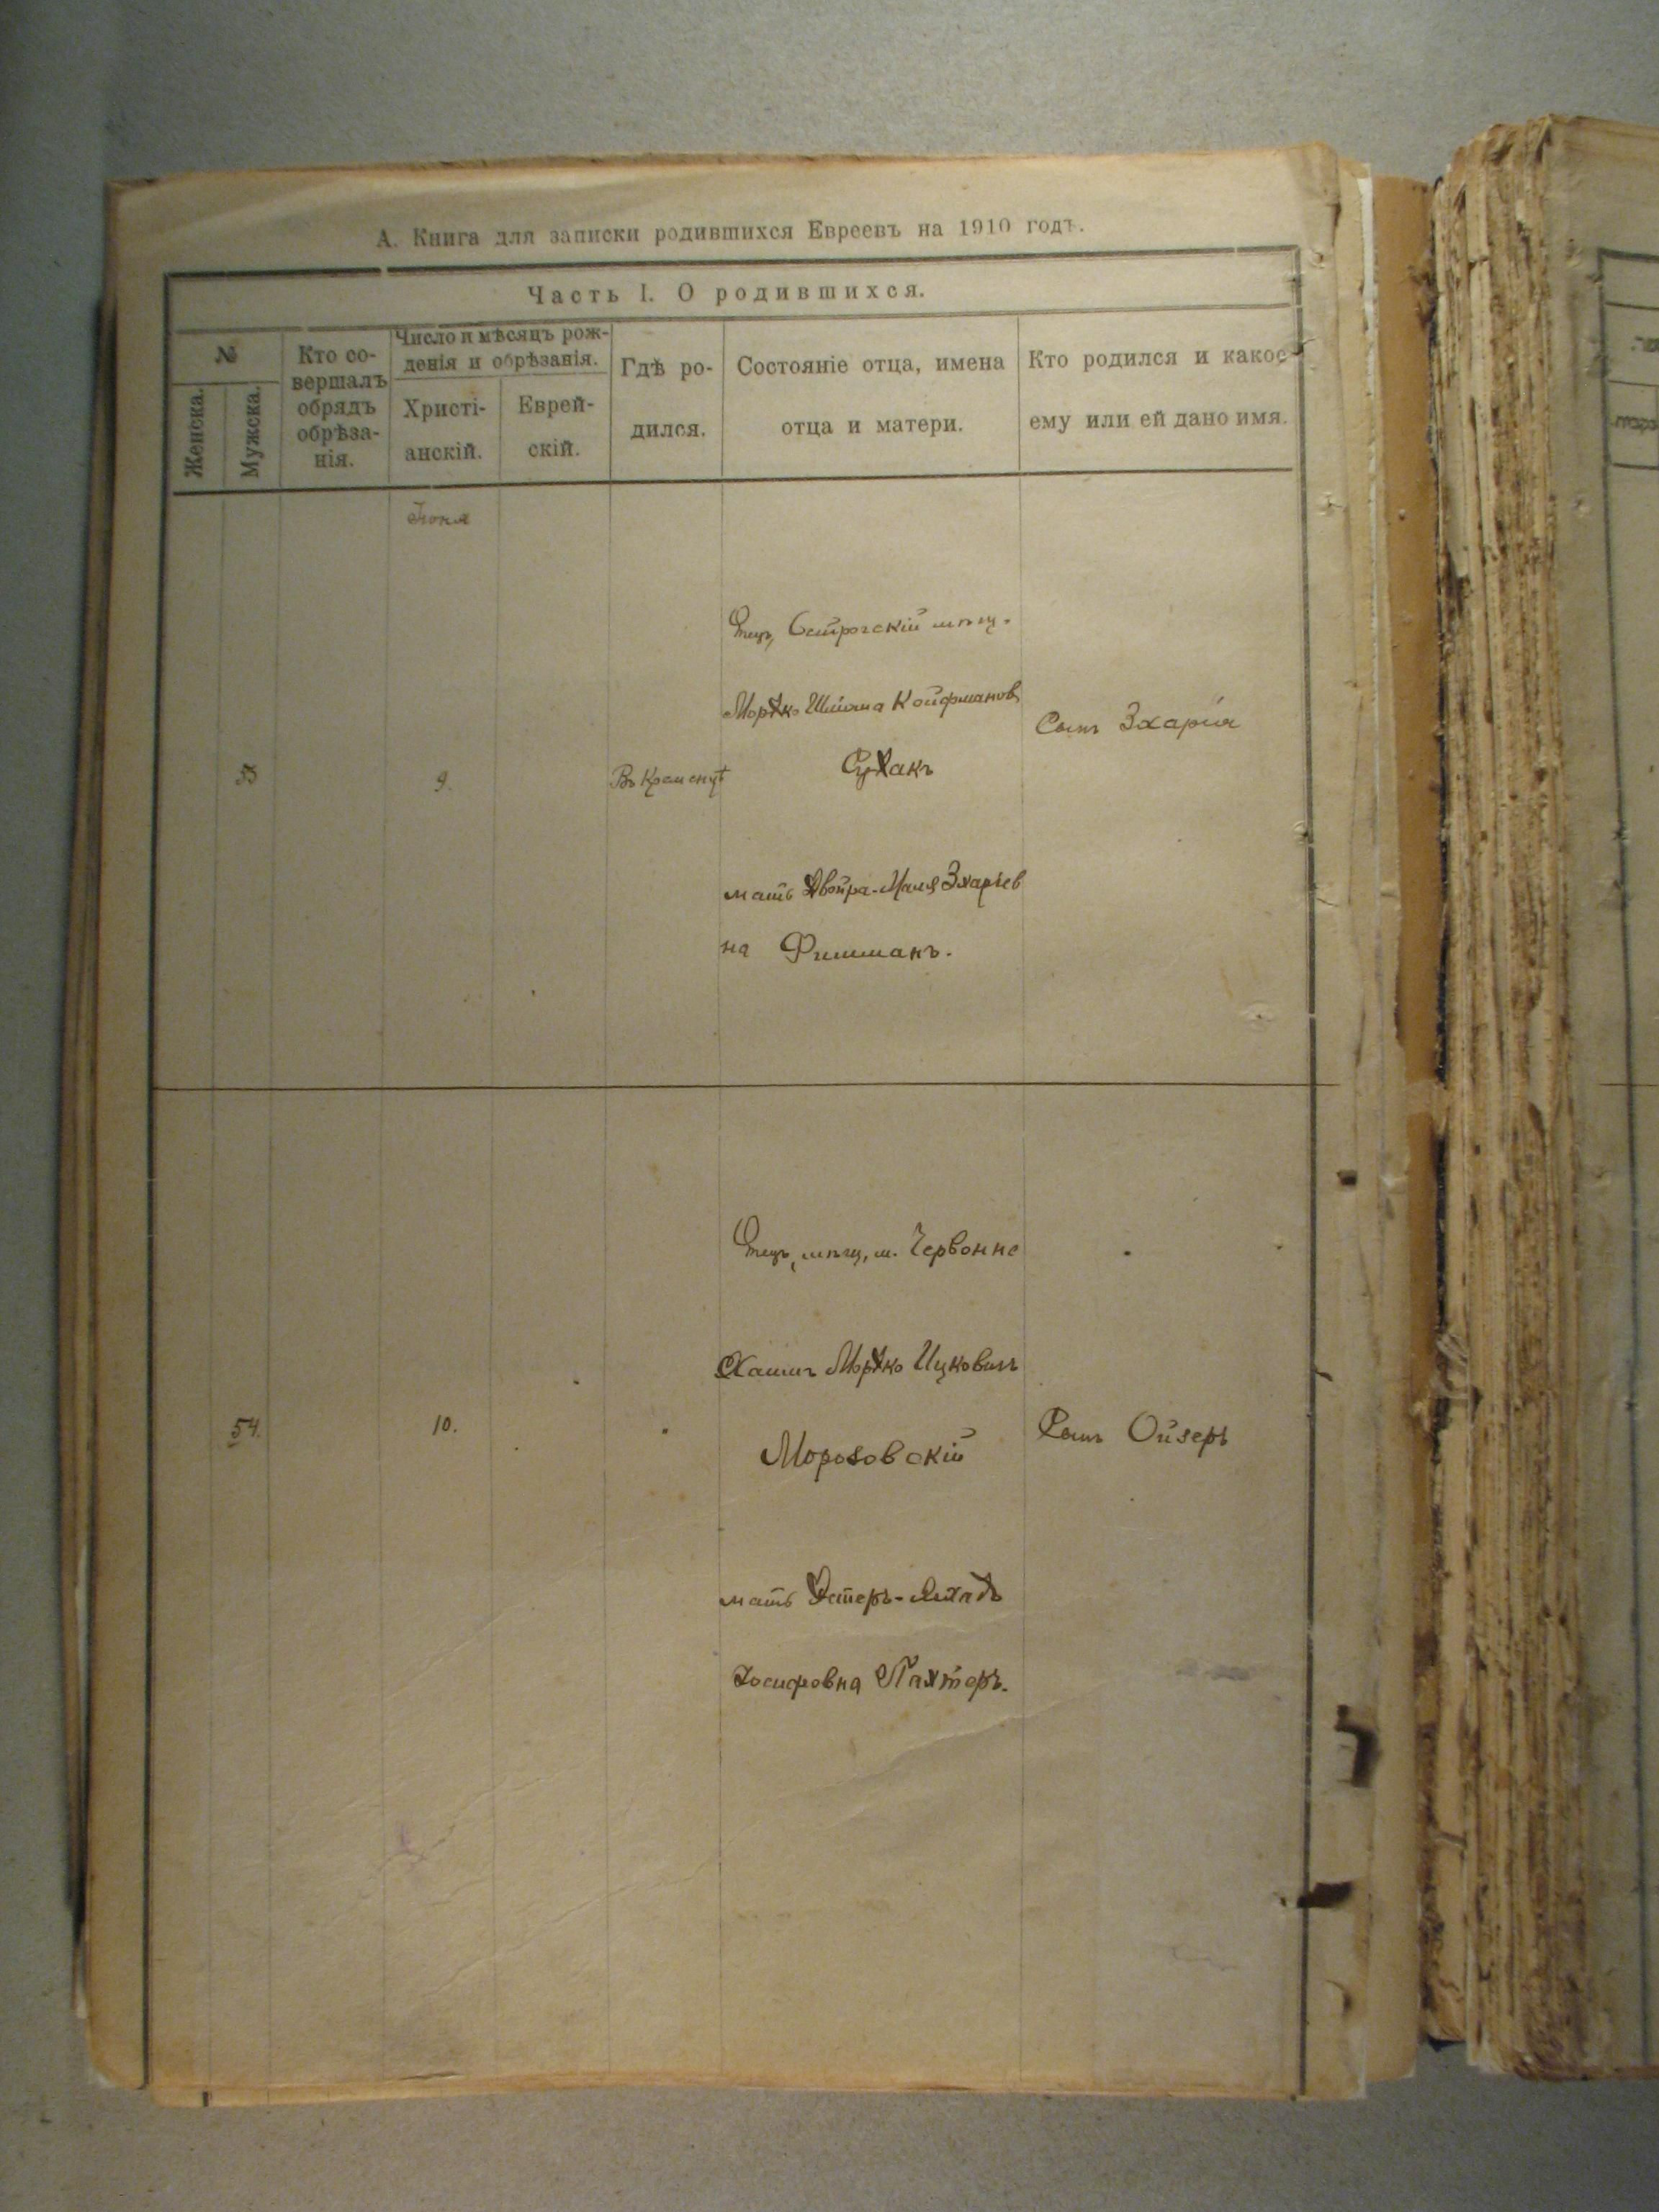 А. Книга для записки родившихся Евреевъ на 1910 годъ.
Часть I. О родившихся.
№
Женска.
Мужска.
Кто со-
вершалъ
обрядъ
обрѣза-
нія.
Число и мѣсяцъ рож-
денія и обрѣзанія.
Христі-
анскій.
Еврей-
скій.
Гдѣ ро-
дился.
Состояніе отца, имена
отца и матери.
Кто родился и какое
ему или ей дано имя.
Іюня
53
9.
Въ Кременцѣ
Отецъ, Острогскій мѣщ.
Мордко Шлома Койфманов
Судакъ
мать Двойра-Маля Зхаріев
на Фишманъ.
Сынъ Зхарія
54.
10.
Отецъ, мѣщ. м. Червонно
Хаимъ Мордко Ицковичъ
Морозовскій
мать Эстеръ-
Іосифовна Пахтеръ.
Сынъ Ойзеръ